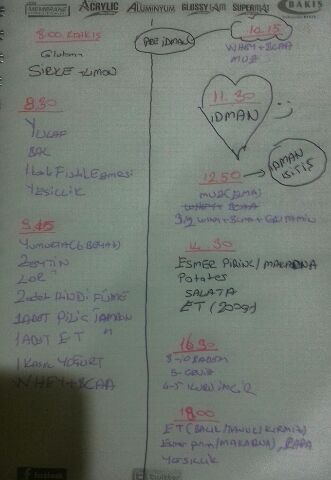 MEMBRANE ACRYLIC ALUMINYUM GLOSSY/SAM SUPERMAT BAKIS
8:00 KALKIS
Glutamin
SIRKE + LIMON
8.30
YULAF
BAL
1 tatlı Fıstık Ezmesi
YESILLIK
9.45
YUMURTA (6 BEYAZ)
ZEYTIN
LOR
2 adet HINDI FÜME
1 ADET PILIC JAMBON
1 ADET ET "
1 KASE YOGURT
WHEY + BCAA
PRE IDMAN
10.15
WHEY + BCAA
MUZ
11.30
IDMAN
12.50
IDMAN BITIS
MUZ (ELMA)
WHEY + BCAA
3/2 WHEY + BCAA + GLUTAMIN
14.30
ESMER PIRINC / MAKARNA
Potates
SALATA
ET (200g)
16.30
8-10 BADEM
5- CEVIZ
4-5 KURU INCIR
18.00
ET (BALIK/TAVUK/KIRMIZI)
Esmer pirin / MAKARNA
YESILLIK
facebook
twitter